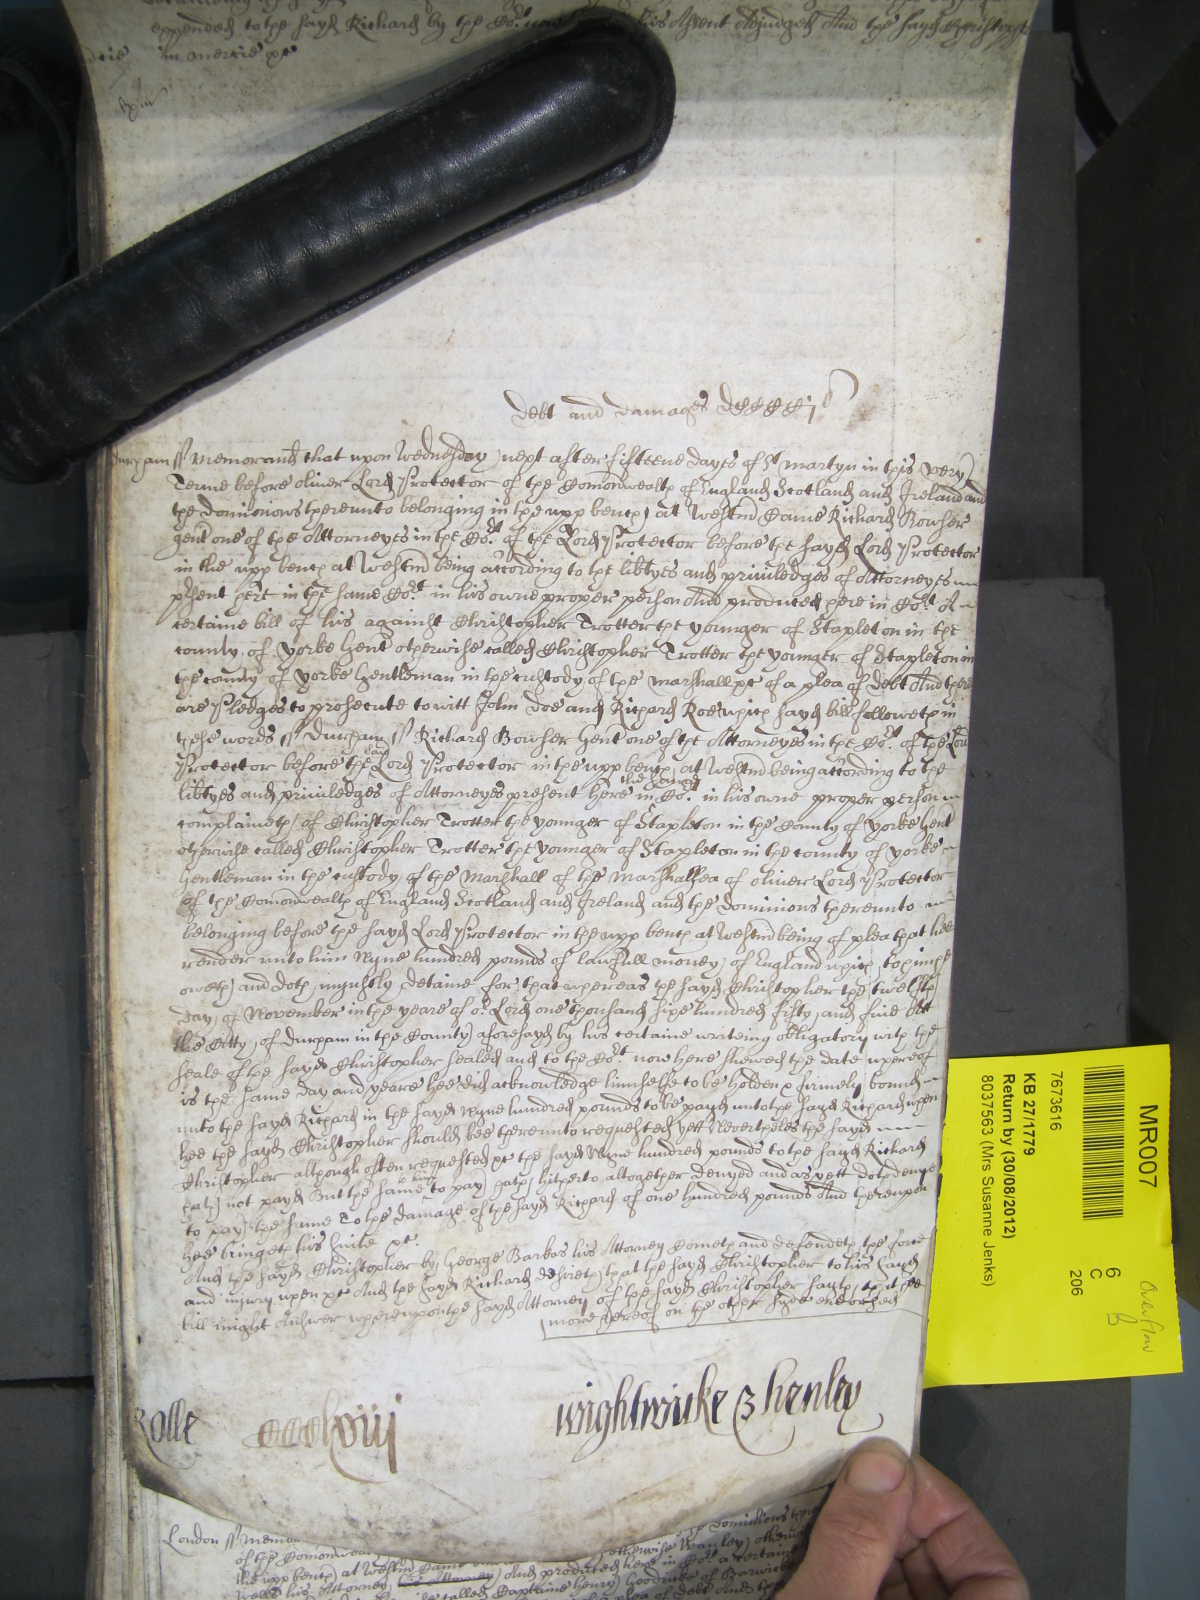 expended to the sayd Richard by the Cot. now his Assent Adjudged And the sayd Christopher
in mercie xc
debt and damages DCCCCjl
Durham ss Memorand that upon Wednesday next after fifteene dayes of St Martyn in this very
Terme before Oliver Lord Protector of the Comonwealth of England Scotland and Ireland and
the dominions thereunto belonging in the upp bench at Westmd Came Richard Bowser
gent one of the Attorneyes in the Cot. of the Lord Protector before the sayd Lord Protector
in the upp bench at Westmd being according to the libtyes and priviledges of Attorneyes
psent here in the same Cot. in his owne proper person And produced here in Cot. A
certaine bill of his against Christopher Trotter the younger of Stapleton in the
county of Yorke Gent otherwise called Christopher Trotter the younger of Stapleton in
the county of Yorke Gentleman in the custody of the Marshall xc of a plea of debt And there
are Pledges to prosecute to witt John Doe and Richard Roe which sayd bill followeth in
these words ss Durham ss Richard Bowser Gent one of the Attorneyes in the Cot. of the Lord
Protector before the sayd Lord Protector in the upp bench at Westmd being according to the
libtyes and priviledges of Attorneyes present here in the same Cot. in his owne proper person
complaineth of Christopher Trotter the younger of Stapleton in the County of Yorke Gent
otherwise called Christopher Trotter the younger of Stapleton in the county of Yorke
Gentleman in the custody of the Marshall of the Marshallsea of Oliver Lord Protector
of the Comonwealth of England Scotland and Ireland and the dominions thereunto
belonging before the sayd Lord Protector in the upp bench at Westmd being of plea that hee
render unto him Nyne hundred pounds of lawfull money of England which to him hee
oweth and doth uniustly detaine for that whereas the sayd Christopher the twelfth
day of November in the yeare of or Lord one thousand sixe hundred fifty and five Att
the Citty of Durham in the County aforesayd by his certaine writeing obligatory with the
seale of the sayd Christopher sealed and to the Cot. now here shewed the date whereof
is the same day and yeare hee did acknowledge himselfe to be holden & firmely bound
unto the sayd Richard in the sayd Nyne hundred pounds to be payd unto the sayd Richard when
hee the sayd Christopher should bee thereunto requested yett Neverthelesse the sayd
Christopher although often requested xc the sayd Nyne hundred pounds to the sayd Richard
hath not payd But the same to him to pay hath hitherto altogether denyed and as yett doth denye
to pay the same To the damage of the sayd Richard of one hundred pounds And thereupon
hee bringeth his suite xc.
And the sayd Christopher by George Barkas his Attorney Cometh and defendeth the force
and iniury when xc And the sayd Richard desireth that the sayd Christopher to his sayd
bill might Answer whereupon the sayd Attorney of the sayd Christopher sayth that hee
more hereof on the other syde endorsed
Rolle ccclviij Wightwicke & Henley
London ss Memo
of the Comonwea
the upp bench at Westmd Came otherwise
And produced here in Cot. a certaine
called Captaine Henry Goodricke of Barwicke
plea of debt And
MR007
7673616
KB 27/1779
Return by (30/08/2012)
8037563 (Mrs Susanne Jenks)
6
C
206
Overflow
B